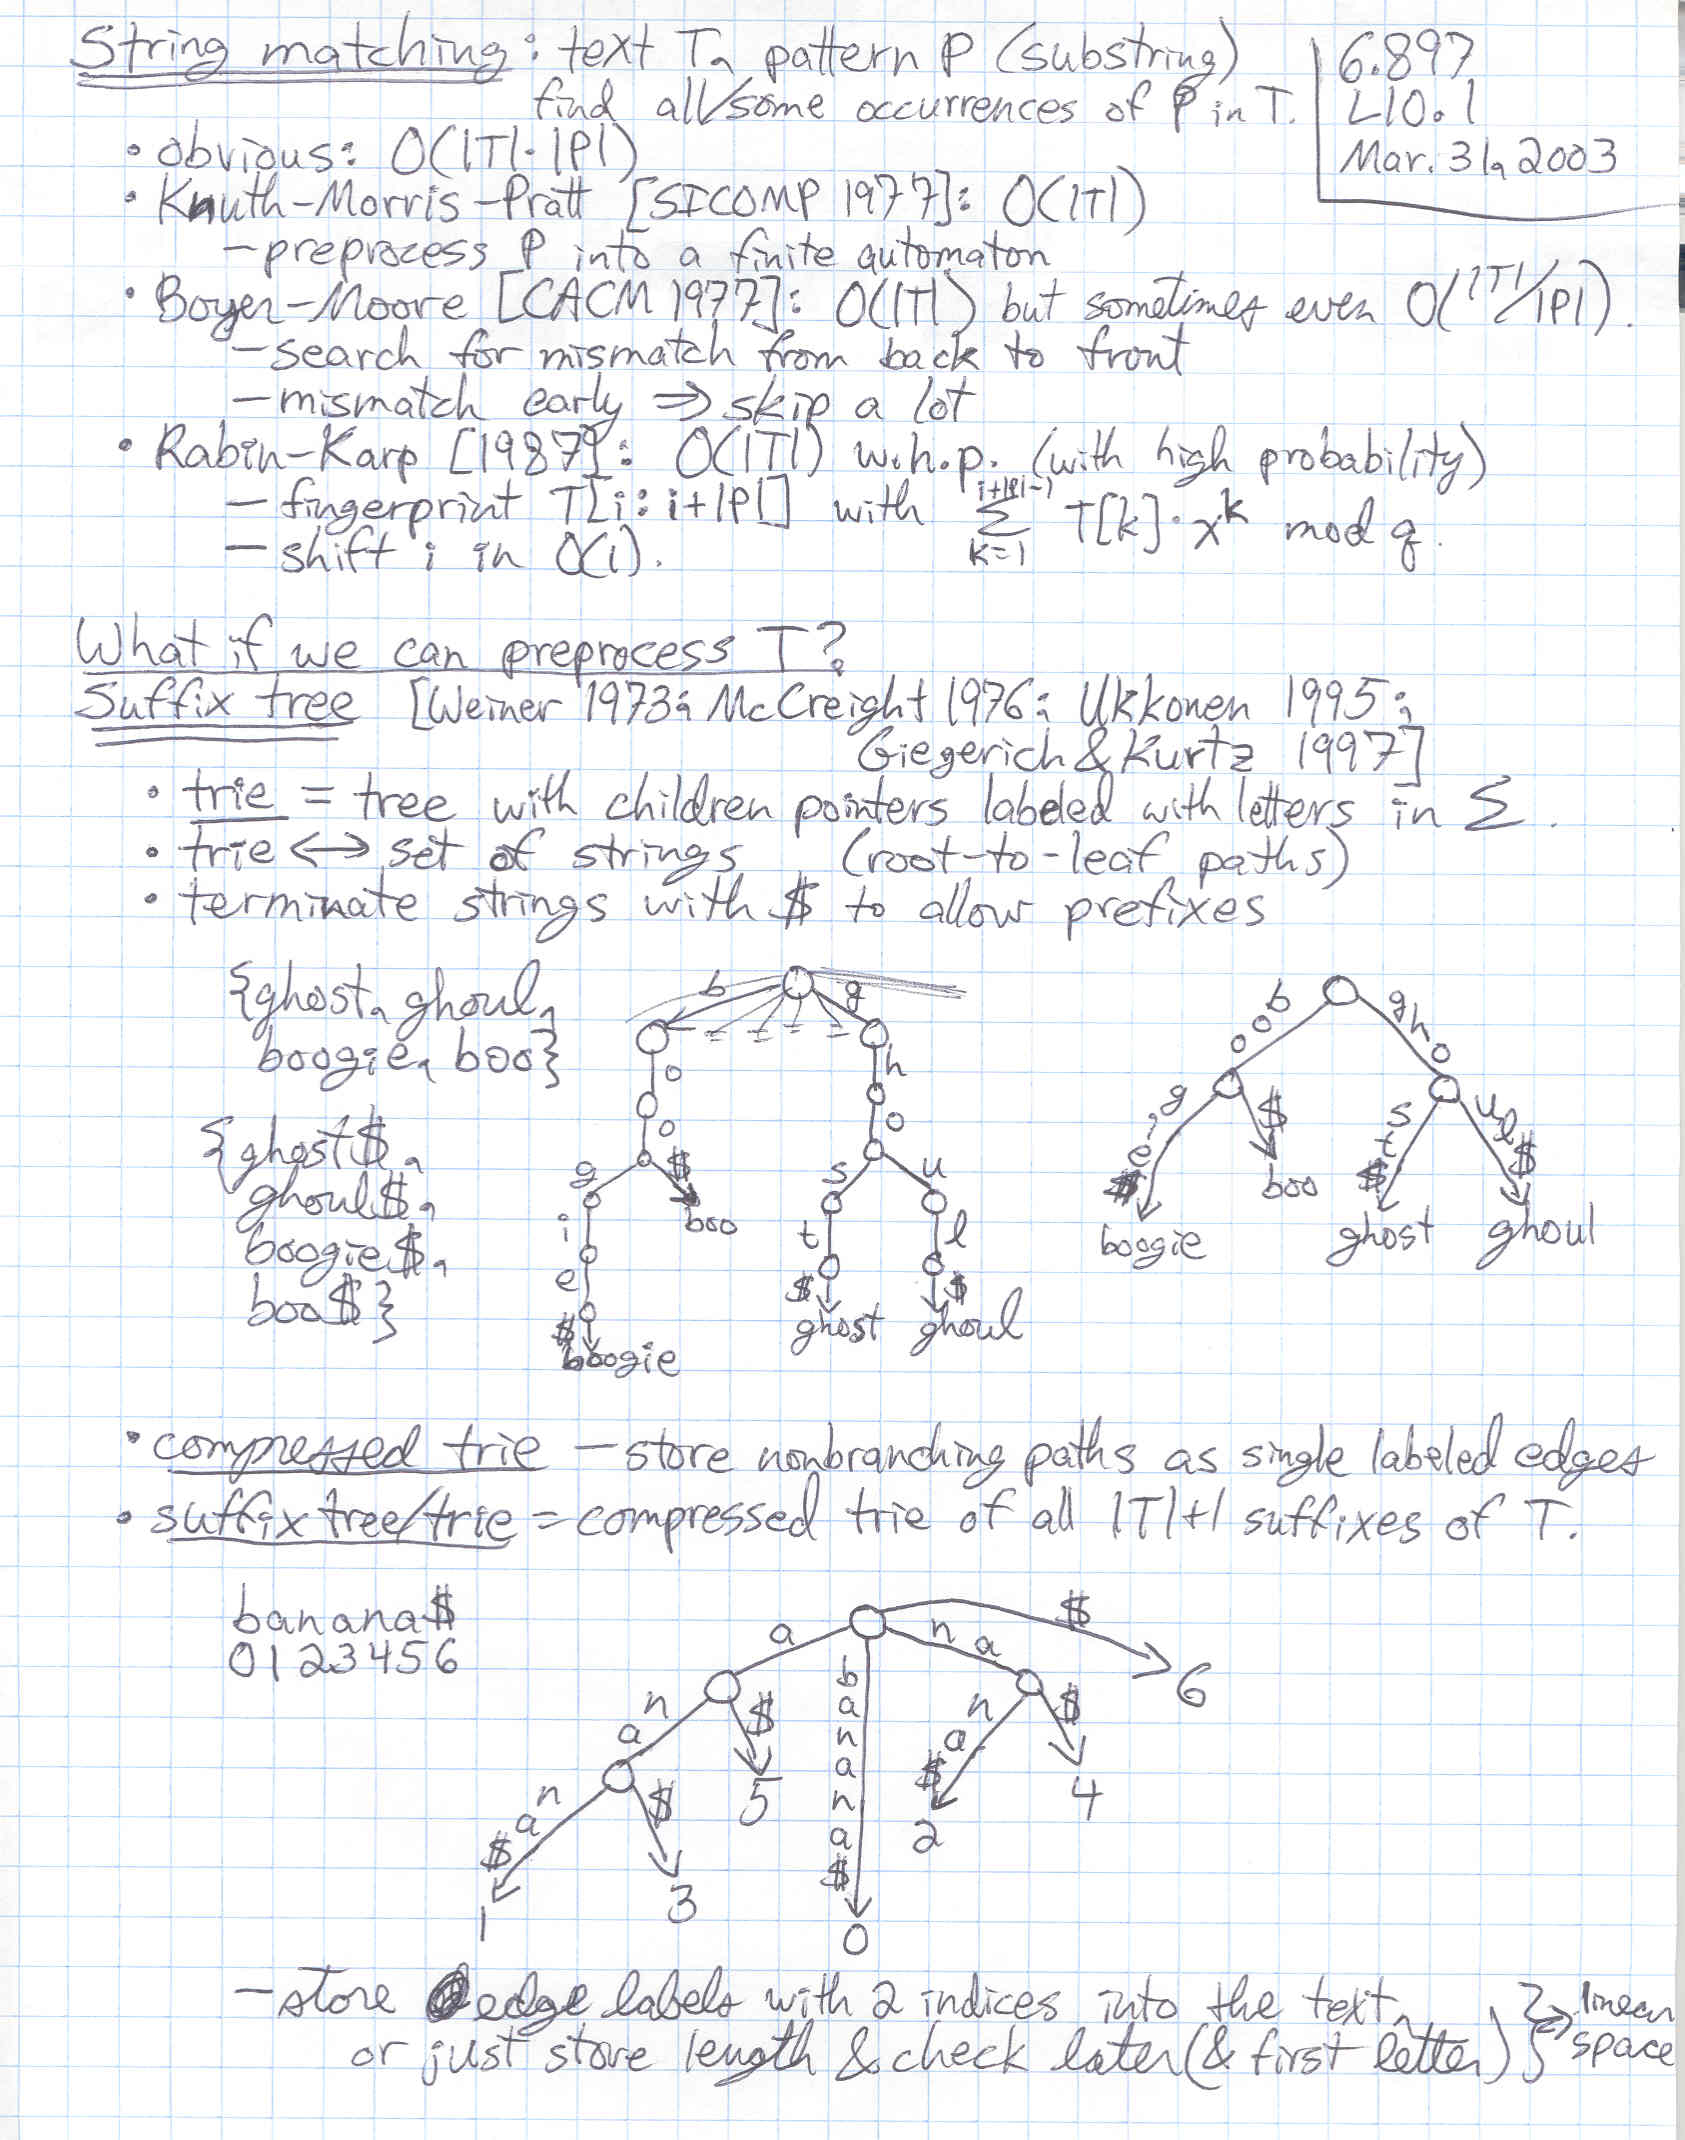 String matching: text T, pattern P (substring)
find all/some occurrences of P in T.
6.897
L10.1
Mar. 31, 2003
• obvious: O(|T|·|P|)
• Knuth-Morris-Pratt [SICOMP 1977]: O(|T|)
- preprocess P into a finite automaton
• Boyer-Moore [CACM 1977]: O(|T|) but sometimes even O(|T|/|P|).
- search for mismatch from back to front
- mismatch early ⇒ skip a lot
• Rabin-Karp [1987]: O(|T|) w.h.p. (with high probability)
- fingerprint T[i:i+|P|] with Σ_{k=1}^{i+|P|-1} T[k]·x^k mod q.
- shift i in O(1).
What if we can preprocess T?
Suffix tree [Weiner 1973; McCreight 1976; Ukkonen 1995;
Giegerich & Kurtz 1997]
• trie = tree with children pointers labeled with letters in Σ.
• trie ↔ set of strings (root-to-leaf paths)
• terminate strings with $ to allow prefixes
{ghost, ghoul,
boogie, boo}
{ghost$,
ghoul$,
boogie$,
boo$}
b g
o h
o o
g $ s u
boo
i t l
e $ $
$ ghost ghoul
boogie
b o o g h o
g i e $ $ s t $ u l $
boogie boo ghost ghoul
• compressed trie - store nonbranching paths as single labeled edges
• suffix tree/trie = compressed trie of all |T|+1 suffixes of T.
banana$
0123456
a b a n a n a $ n a $
n a $ n a $ $ 6
n a $ $ 5 2 4
1 3 0
- store edge labels with 2 indices into the text,
or just store length & check later (& first letter)
} ⇒ linear
space